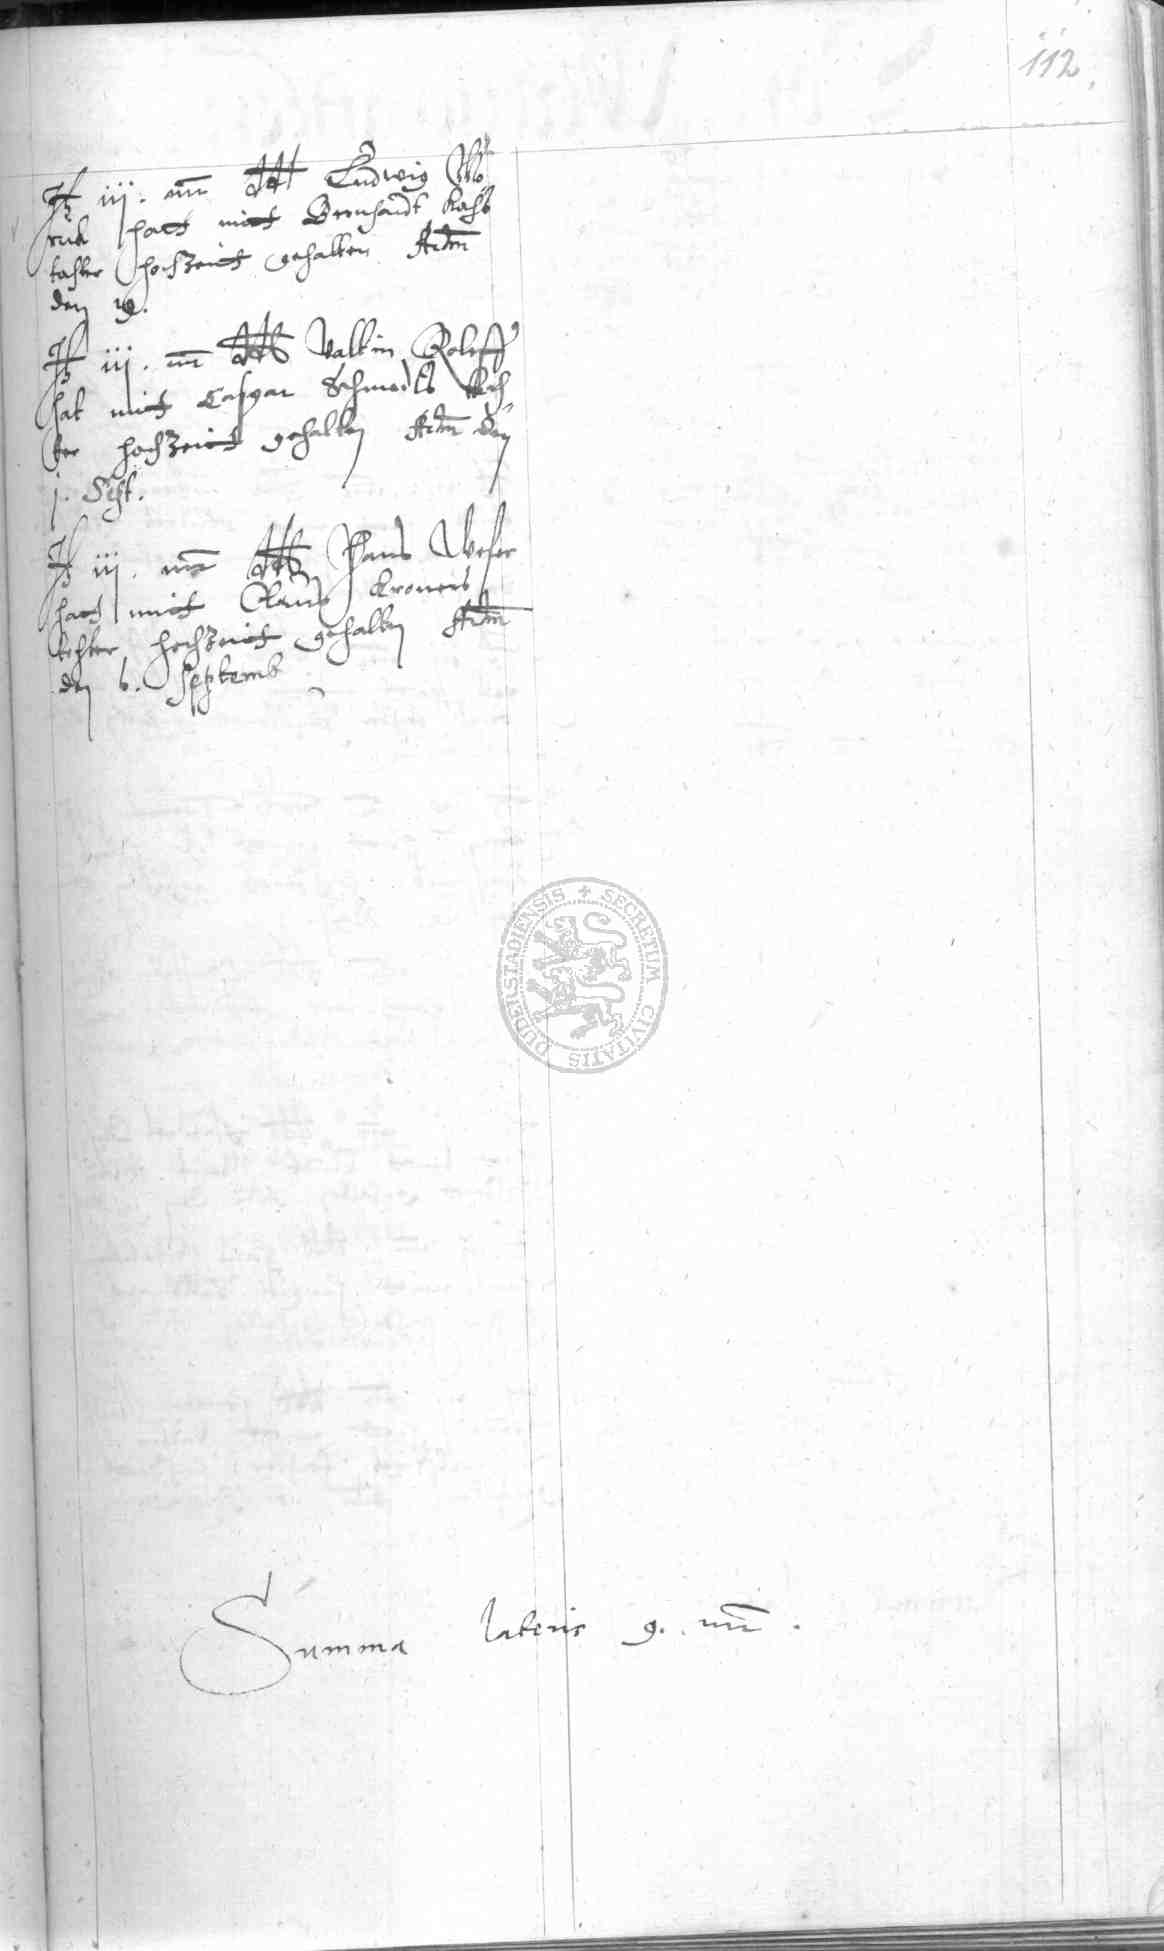 112
It iij. mr dt Ludwig
hatt mitt Bernhardt
tochter hochzeitt gehalten Actum
den
It iij. mr dt Valtin Roleff
hat mitt Caspar Schmedts toch
ter hochzeitt gehalten Actum den
j. Sept.
It iij. mr dt Hans Weser
hatt mitt Claus Kroneis
tochter hochzeitt gehalten Actum
den 6. Septemb
SECRETUM CIVITATIS DUDERSTADIENSIS
Summa lateris 9. mr.